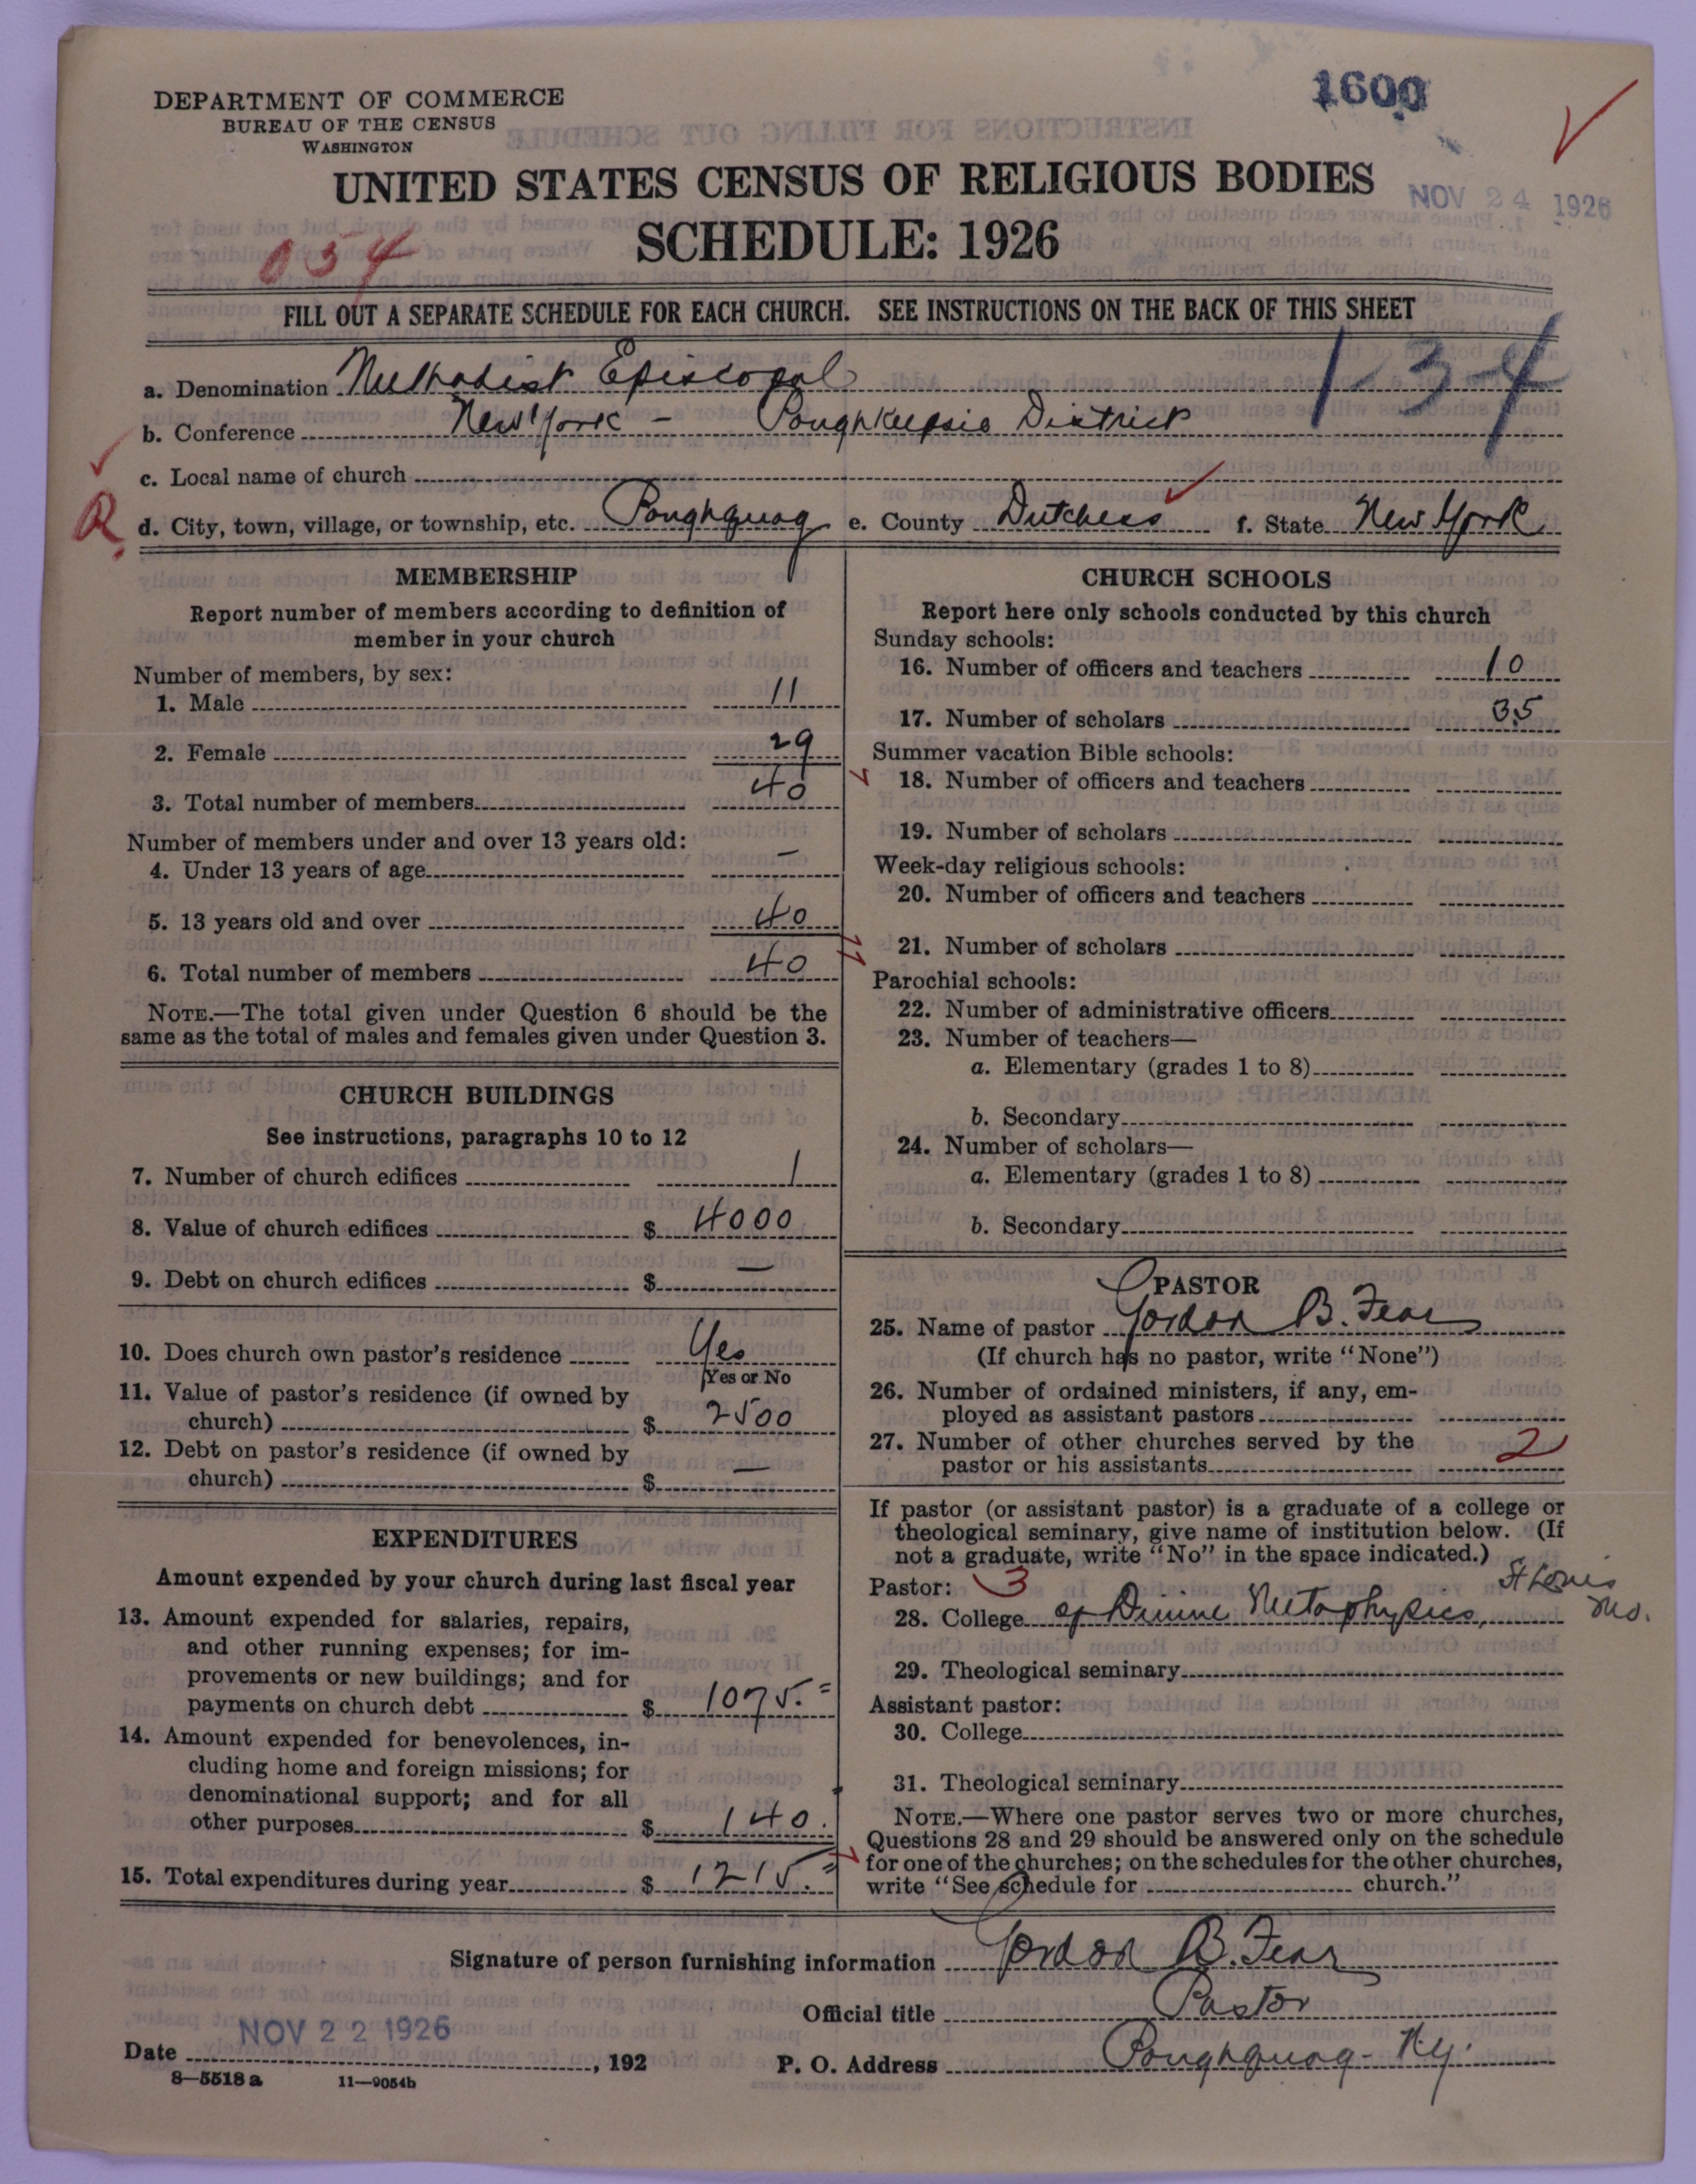 DEPARTMENT OF COMMERCE
BUREAU OF THE CENSUS
WASHINGTON
1600
UNITED STATES CENSUS OF RELIGIOUS BODIES
NOV 24 1926
SCHEDULE: 1926
054
FILL OUT A SEPARATE SCHEDULE FOR EACH CHURCH. SEE INSTRUCTIONS ON THE BACK OF THIS SHEET
134
a. Denomination Methodist Episcopal
b. Conference New York - Poughkeepsie District
c. Local name of church
R d. City, town, village, or township, etc. Poughquag e. County Dutchess f. State New York
MEMBERSHIP
Report number of members according to definition of
member in your church
Number of members, by sex:
1. Male 11
2. Female 29
3. Total number of members 40
Number of members under and over 13 years old:
4. Under 13 years of age –
5. 13 years old and over 40
6. Total number of members 40
NOTE.—The total given under Question 6 should be the
same as the total of males and females given under Question 3.
CHURCH BUILDINGS
See instructions, paragraphs 10 to 12
7. Number of church edifices 1
8. Value of church edifices $ 4000
9. Debt on church edifices $ –
10. Does church own pastor's residence Yes
Yes or No
11. Value of pastor's residence (if owned by
church) $ 2500
12. Debt on pastor's residence (if owned by
church) $ –
EXPENDITURES
Amount expended by your church during last fiscal year
13. Amount expended for salaries, repairs,
and other running expenses; for im-
provements or new buildings; and for
payments on church debt $ 1075.=
14. Amount expended for benevolences, in-
cluding home and foreign missions; for
denominational support; and for all
other purposes $ 140.
15. Total expenditures during year $ 1215.=
CHURCH SCHOOLS
Report here only schools conducted by this church
Sunday schools:
16. Number of officers and teachers 10
17. Number of scholars 35
Summer vacation Bible schools:
18. Number of officers and teachers
19. Number of scholars
Week-day religious schools:
20. Number of officers and teachers
21. Number of scholars
Parochial schools:
22. Number of administrative officers
23. Number of teachers—
a. Elementary (grades 1 to 8)
b. Secondary
24. Number of scholars—
a. Elementary (grades 1 to 8)
b. Secondary
PASTOR
25. Name of pastor Gordon B. Fear
(If church has no pastor, write "None")
26. Number of ordained ministers, if any, em-
ployed as assistant pastors
27. Number of other churches served by the
pastor or his assistants 2
If pastor (or assistant pastor) is a graduate of a college or
theological seminary, give name of institution below. (If
not a graduate, write "No" in the space indicated.)
Pastor: 3
28. College of Divine Metaphysics, St Louis Mo.
29. Theological seminary
Assistant pastor:
30. College
31. Theological seminary
NOTE.—Where one pastor serves two or more churches,
Questions 28 and 29 should be answered only on the schedule
for one of the churches; on the schedules for the other churches,
write "See schedule for church."
Signature of person furnishing information Gordon B. Fear
Official title Pastor
Date NOV 22 1926, 192
P. O. Address Poughquag - N.Y.
8—5518 a 11—9054b